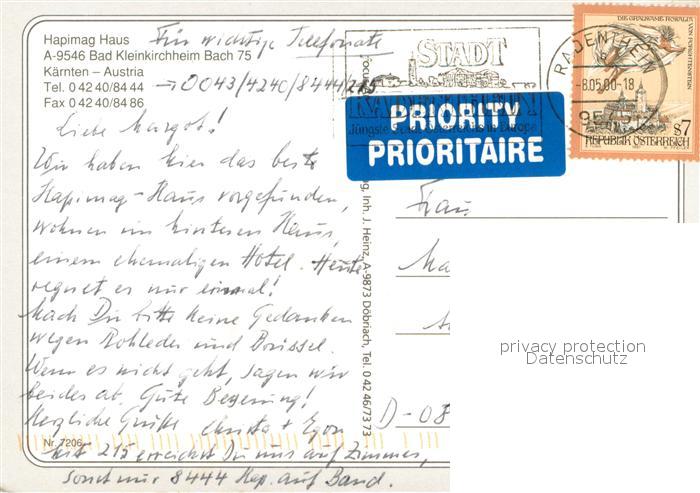 Hapimag Haus
A-9546 Bad Kleinkirchheim Bach 75
Kärnten – Austria
Tel. 0 42 40/84 44
Fax 0 42 40/84 86
Für wichtige Telefonate
→ 0043/4240/8444/215
Liebe Margot!
Wir haben hier das beste
Hapimag-Haus vorgefunden,
wohnen im hinteren Haus,
einem ehemaligen Hotel. Heute
regnet es nur einmal!
Mach Dir bitte keine Gedanken
wegen Rohleder und Brüssel.
Wenn es nicht geht, sagen wir
beides ab. Gute Besserung!
Herzliche Grüße Christa + Egon
Mit 215 erreichst Du uns auf Zimmer,
sonst nur 8444 Hap. auf Band.
Nr. 7206
Inh. J. Heinz, A-9873 Döbriach, Tel. 0 42 46/73 73
STADT
Jüngste Stadt Österreichs in Europa
PRIORITY
PRIORITAIRE
RADENTHEIN
-8.05.00-18
DIE GRAUSAME ROSALIA
VON FORCHTENSTEIN
S7
REPUBLIK ÖSTERREICH
Frau
Ma
D-08
privacy protection
Datenschutz